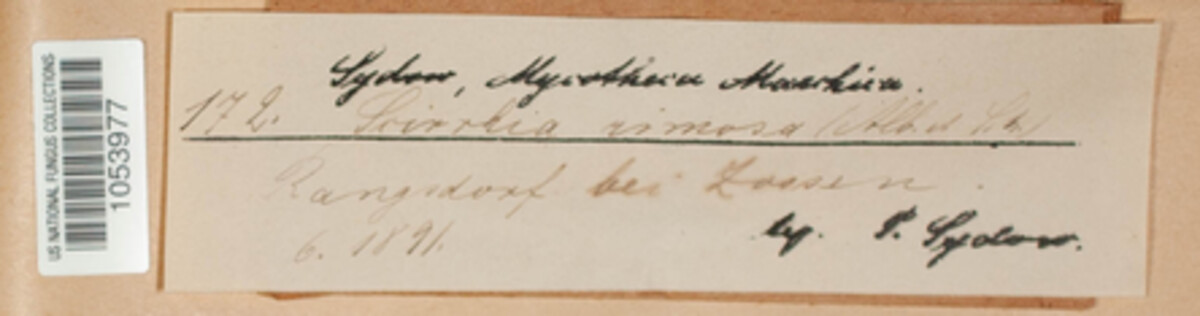 US NATIONAL FUNGUS COLLECTIONS
1053977
Sydow, Mycotheca Marchica.
172. Scirrhia rimosa (Alb. et Sch.)
Rangsdorf bei Zossen.
6. 1891.
leg. P. Sydow.